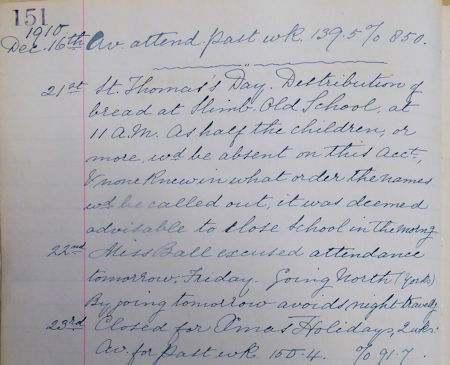 151
1910
Dec. 16th Av. attend. past wk. 139.5 % 85.0.
21st St. Thomas's Day. Distribution of
bread at Slimb. Old School, at
11 A.M. As half the children, or
more, wd be absent on this Acct.,
& none knew in what order the names
wd be called out, it was deemed
advisable to close School in the morng
22nd Miss Ball excused attendance
tomorrow, Friday. Going North (Yorks)
By going tomorrow avoids night travellg
23rd Closed for Xmas Holidays, 2 wks:
Av. for past wk 150.4. % 91.7.